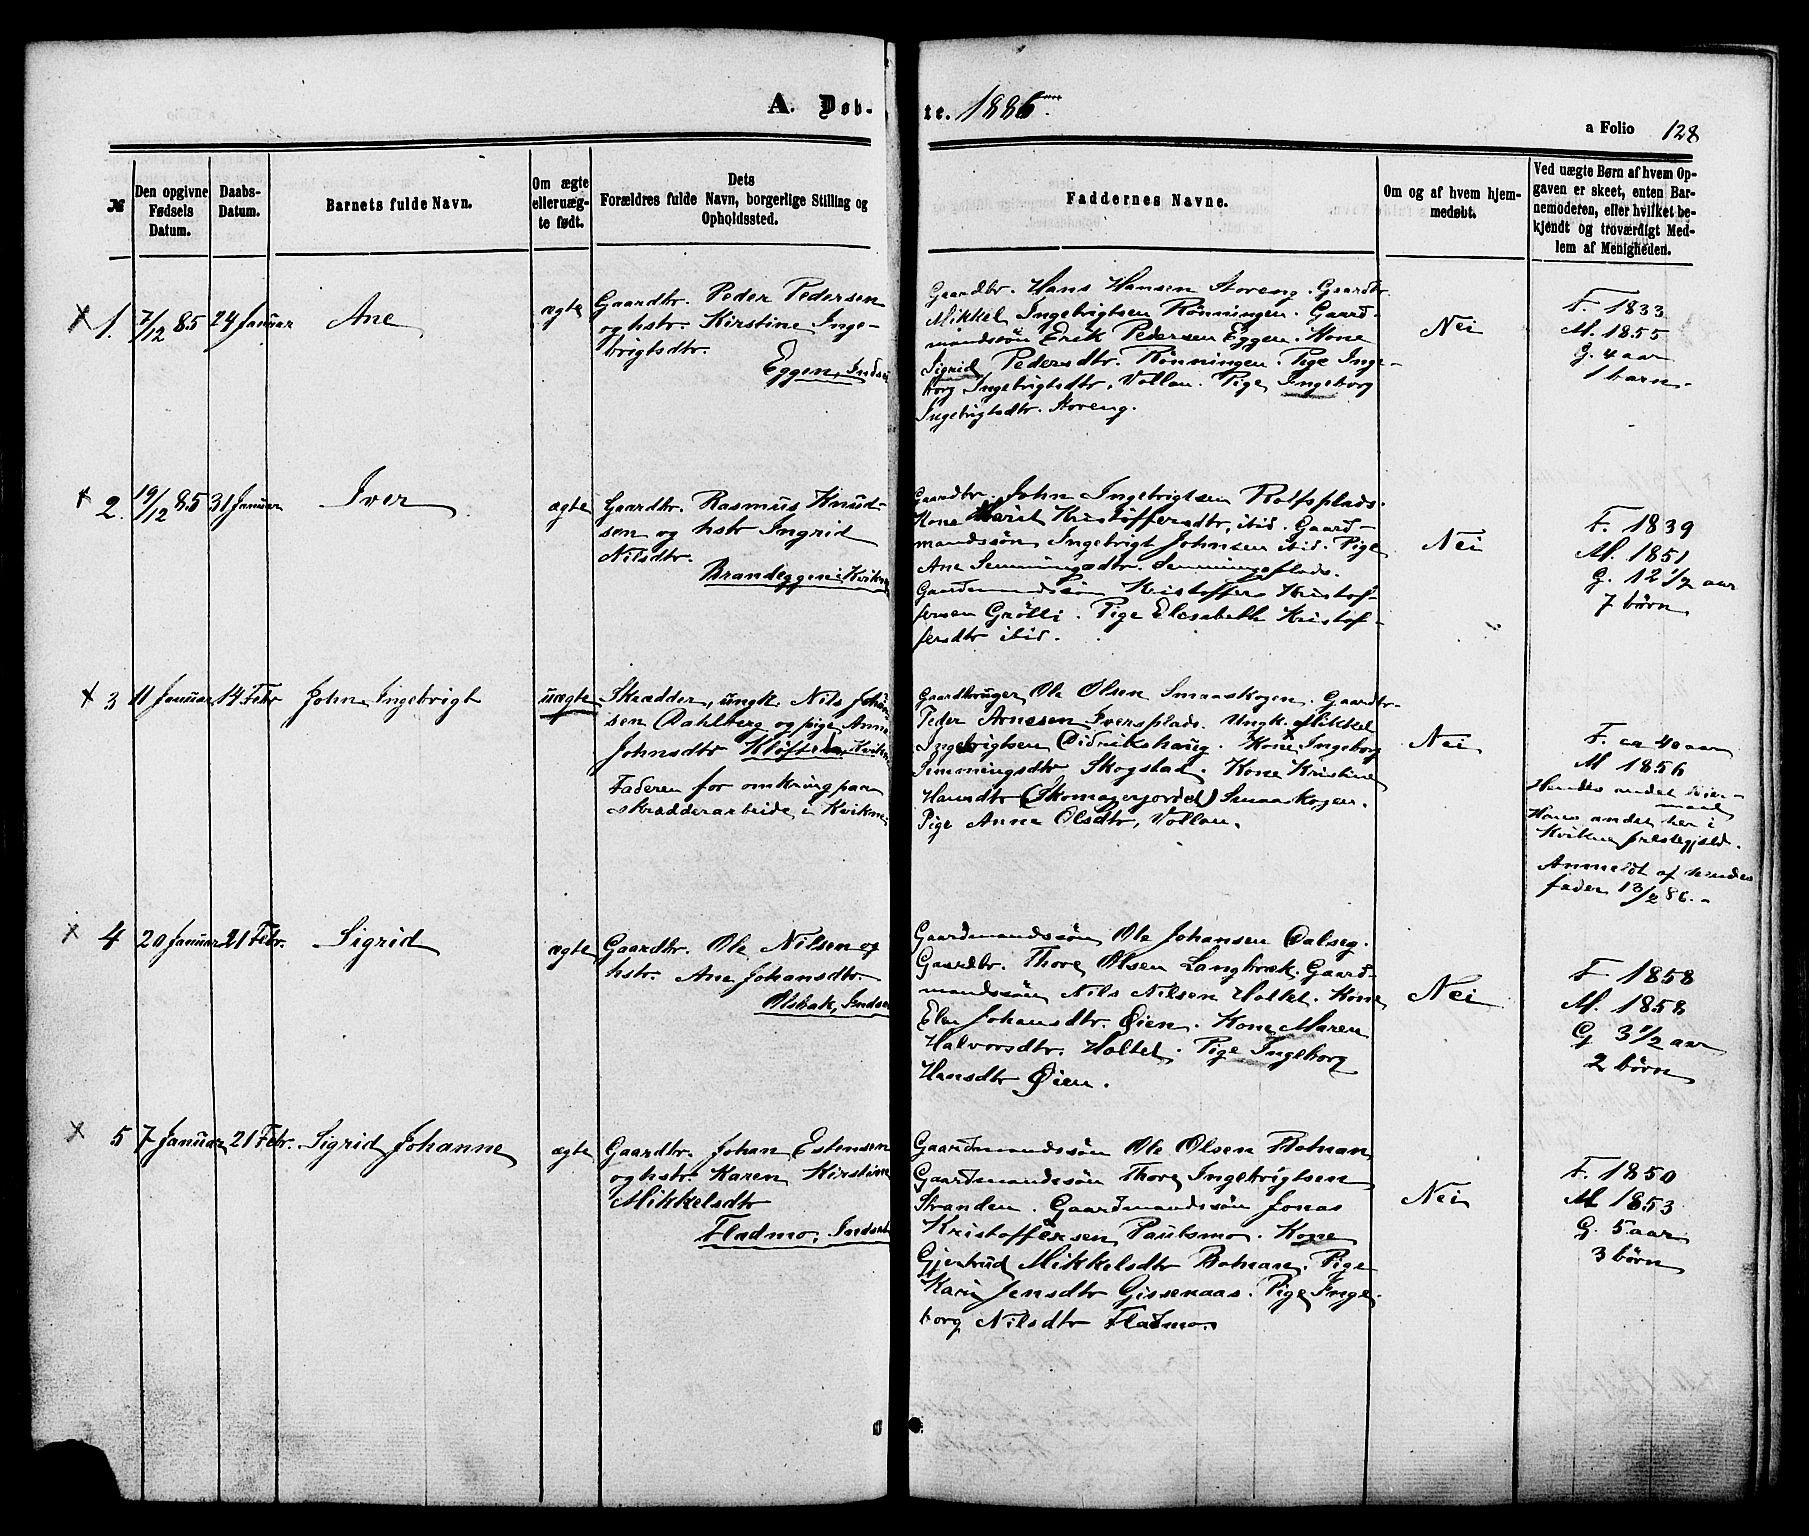 A. Døb-
te. 1886
a Folio 128
№
Den opgivne
Fødsels
Datum.
Daabs-
Datum.
Barnets fulde Navn.
Om ægte
eller uæg-
te født.
Dets
Forældres fulde Navn, borgerlige Stilling og
Opholdssted.
Faddernes Navne.
Om og af hvem hjem-
medøbt.
Ved uægte Børn af hvem Op-
gaven er skeet, enten Bar-
nemoderen, eller hvilket be-
kjendt og troværdigt Med-
lem af Menigheden.
1. 7/12 85 24 Januar
Ane
ægte
Gaardbr. Peder Pedersen
og hstr. Kirstine Inge-
brigtsdtr.
Eggen, Indset
Gaardbr. Hans Hansen Storeng. Gaardbr.
Mikkel Ingebrigtsen Rönningen. Gaard-
mandssön Erik Pedersen Eggen. Kone
Sigrid Pedersdtr. Rönningen. Pige Inge-
borg Ingebrigtsdtr. Vollan. Pige Ingeborg
Ingebrigtsdtr. Storeng.
Nei
F. 1833
M. 1855
G. 4 aar
1 barn.
2. 19/12 85 31 Januar
Iver
ægte
Gaardbr. Rasmus Knud-
sen og hstr Ingrid
Nilsdtr.
Brandeggen i Kvikne
Gaardbr. John Ingebrigtsen Rolfsplads.
Kone Marit Kristoffersdtr, ibid. Gaard-
mandssön Ingebrigt Johnsen ibid. Pige
Ane Semmingsdtr. Semmingsplads.
Gaardmandssön Kristoffer Kristof-
fersen Grölli. Pige Elisabeth Kristof-
fersdtr ibid.
Nei
F. 1839
M. 1851
G. 12 1/2 aar
7 börn
3 11 Januar 14 Febr
John Ingebrigt
uægte
Skrædder, ungk. Nils John-
sen Dahlberg og pige Anne
Johnsdtr Kløften, Kvikne
Faderen for omkring paa
skrædderarbeide i Kvikne
Gaardbruger Ole Olsen Smaaskogen. Gaardbr.
Peder Arnesen Iversplads. Ungk. Mikkel
Ingebrigtsen Didrikshaug. Kone Ingeborg
Simmingsdtr Skogstad. Kone Kristine
Hansdtr (Skomagerjordet) Smaaskogen.
Pige Anne Olsdtr, Vollan.
Nei
F. ca 40 aar
M 1856
Hendes andet leier-
maal
Hans andet her i
Kvikne prestegjeld.
Anmeldt af hendes
fader 13/2 86.
4 20 Januar 21 Febr.
Sigrid
ægte
Gaardbr. Ole Nilsen og
hstr. Ane Johansdtr.
Olsbak, Indset
Gaardmandssön Ole Johansen Dalseg.
Gaardbr. Thore Olsen Langbrek. Gaard-
mandssön Nils Nilsen Holtet. Kone
Elen Johansdtr. Øien. Kone Maren
Halvorsdtr. Holtet. Pige Ingeborg
Hansdtr Øien.
Nei
F. 1858
M. 1858
G 3 1/2 aar
2 börn
5 7 Januar 21 Febr.
Sigrid Johanne
ægte
Gaardbr. Johan Estensen
og hstr. Karen Kirstine
Mikkelsdtr
Fladmo, Indset
Gaardmandssön Ole Olsen Bohan
Gaardmandssön Thore Ingebrigtsen
Stranden. Gaardmandssön Jonas
Kristoffersen Paulsmo. Kone
Gjertrud Mikkelsdtr Bohan. Pige
Kari Jensdtr Gissenaas. Pige Inge-
borg Nilsdtr Fladmo.
Nei
F. 1850
M 1853
G. 5 aar
3 börn